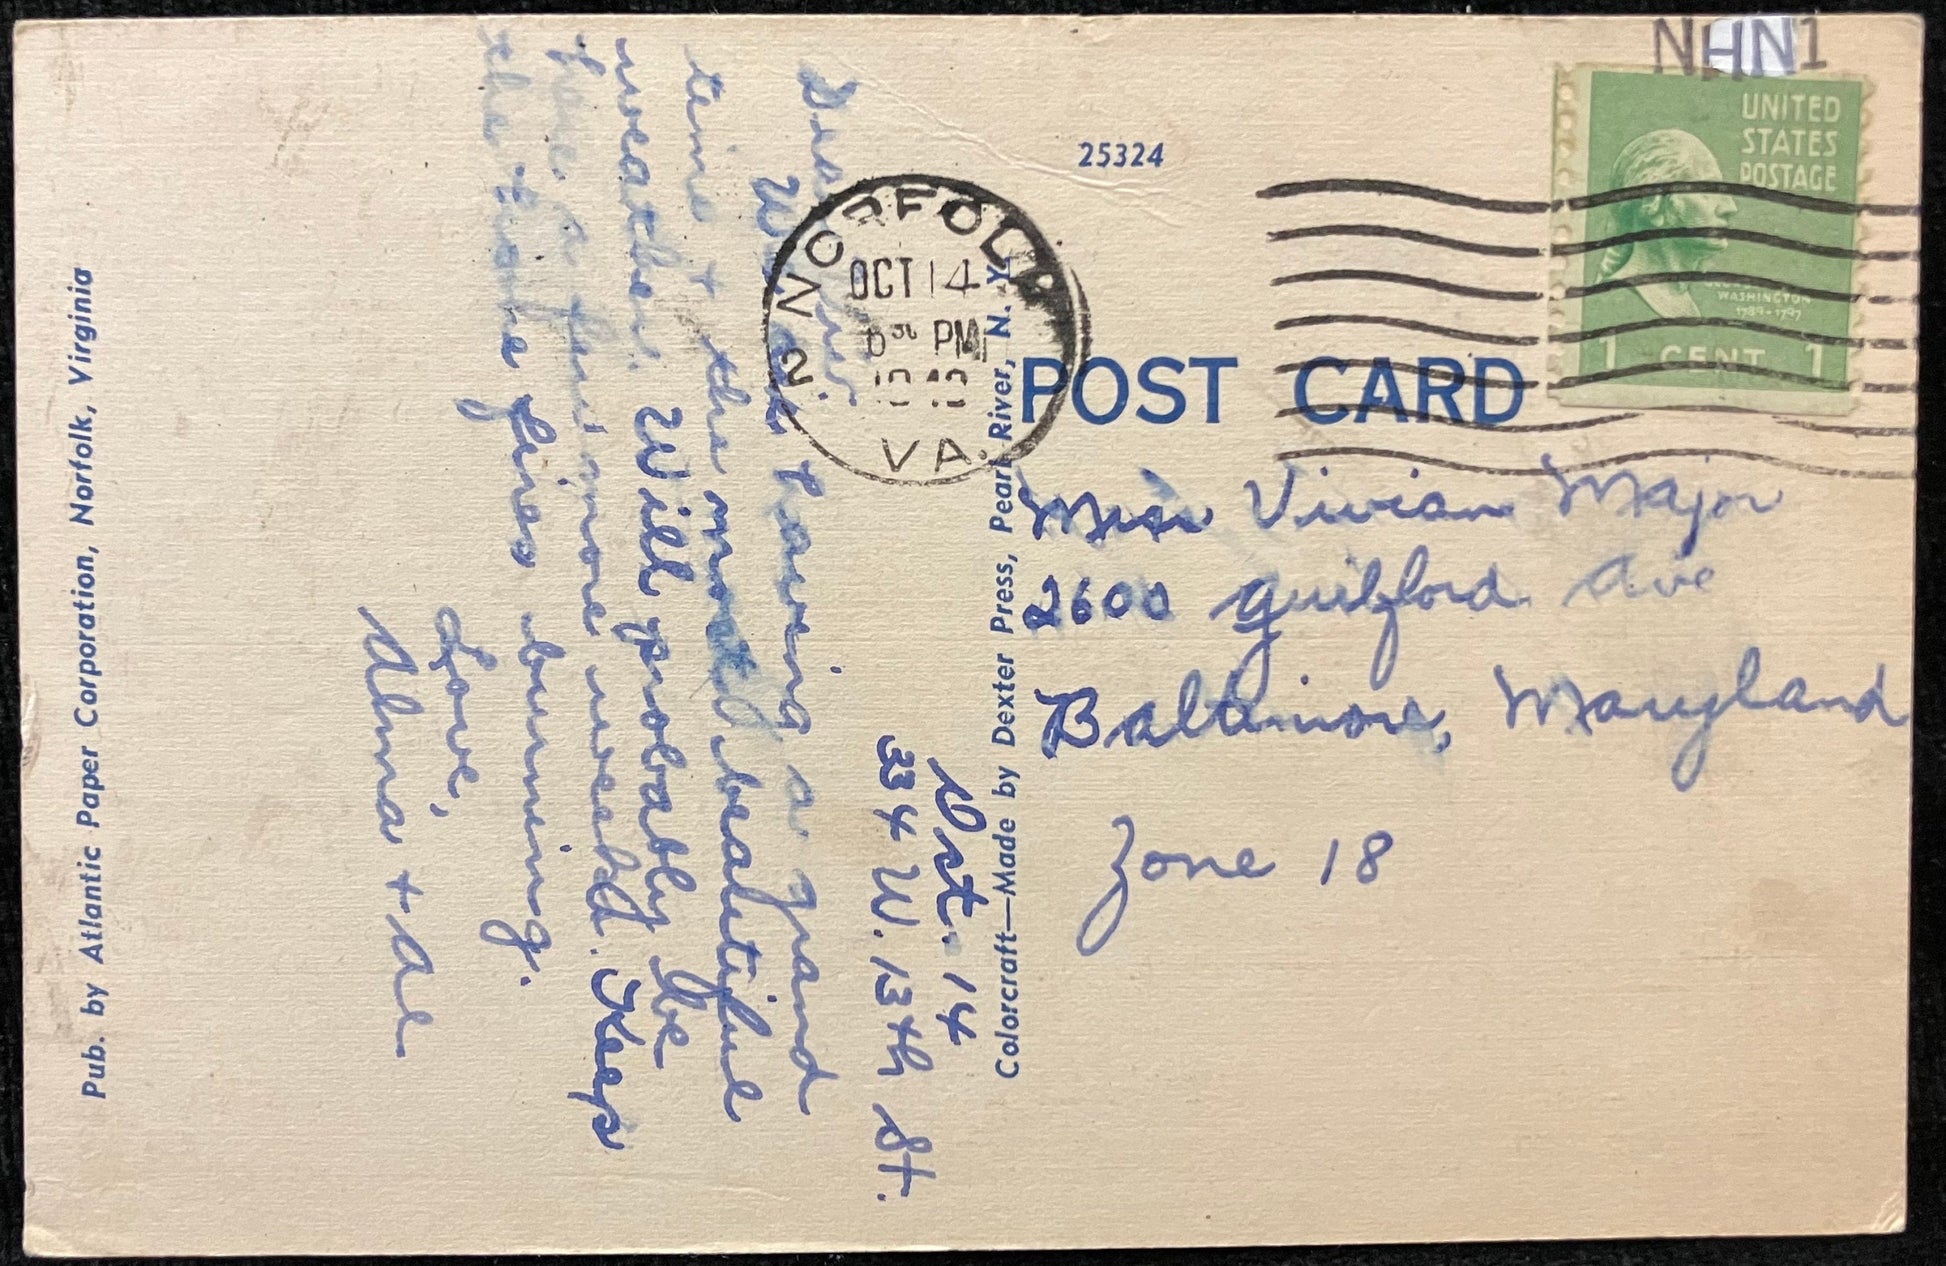 NHN1
UNITED
STATES
POSTAGE
WASHINGTON
1789-1797
1 CENT 1
25324
NORFOLK 2
OCT 14
PM
VA.
POST CARD
Miss Vivian Major
2600 Guilford Ave
Baltimore, Maryland
Zone 18
Oct. 14
334 W. 13th St.
We are having a grand
time + the most beautiful
weather. Will probably be
here a few more weeks. Keep
the home fires burning.
Love,
Alma + Al
Colorcraft—Made by Dexter Press, Pearl River, N. Y.
Pub. by Atlantic Paper Corporation, Norfolk, Virginia